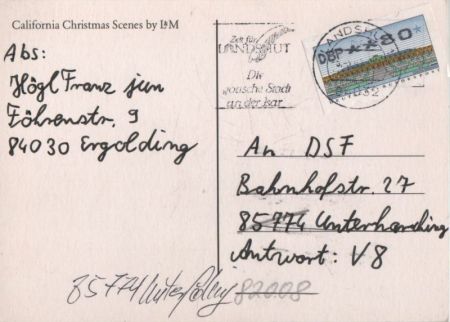 California Christmas Scenes by L&M
Abs:
Högl Franz jun
Föhrenstr. 9
84030 Ergolding
Zeit für
LANDSHUT
Die
gotische Stadt
an der Isar
LANDSHUT
DBP ★★★80
An DSF
Bahnhofstr. 27
85774 Unterhaching
Antwort: V8
85774 Unterföhring
82008